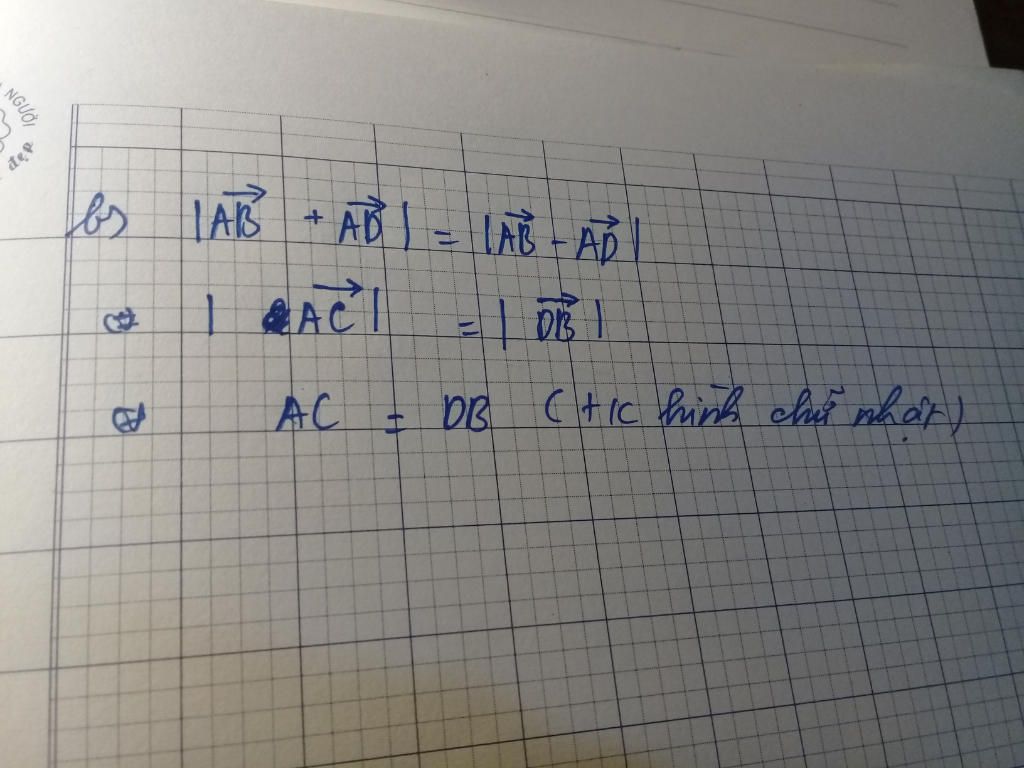 NGƯỜI
đẹp
b) |\overrightarrow{AB} + \overrightarrow{AD}| = |\overrightarrow{AB} - \overrightarrow{AD}|
⇔ |\overrightarrow{AC}| = |\overrightarrow{DB}|
⇔ AC = DB (t/c hình chữ nhật)